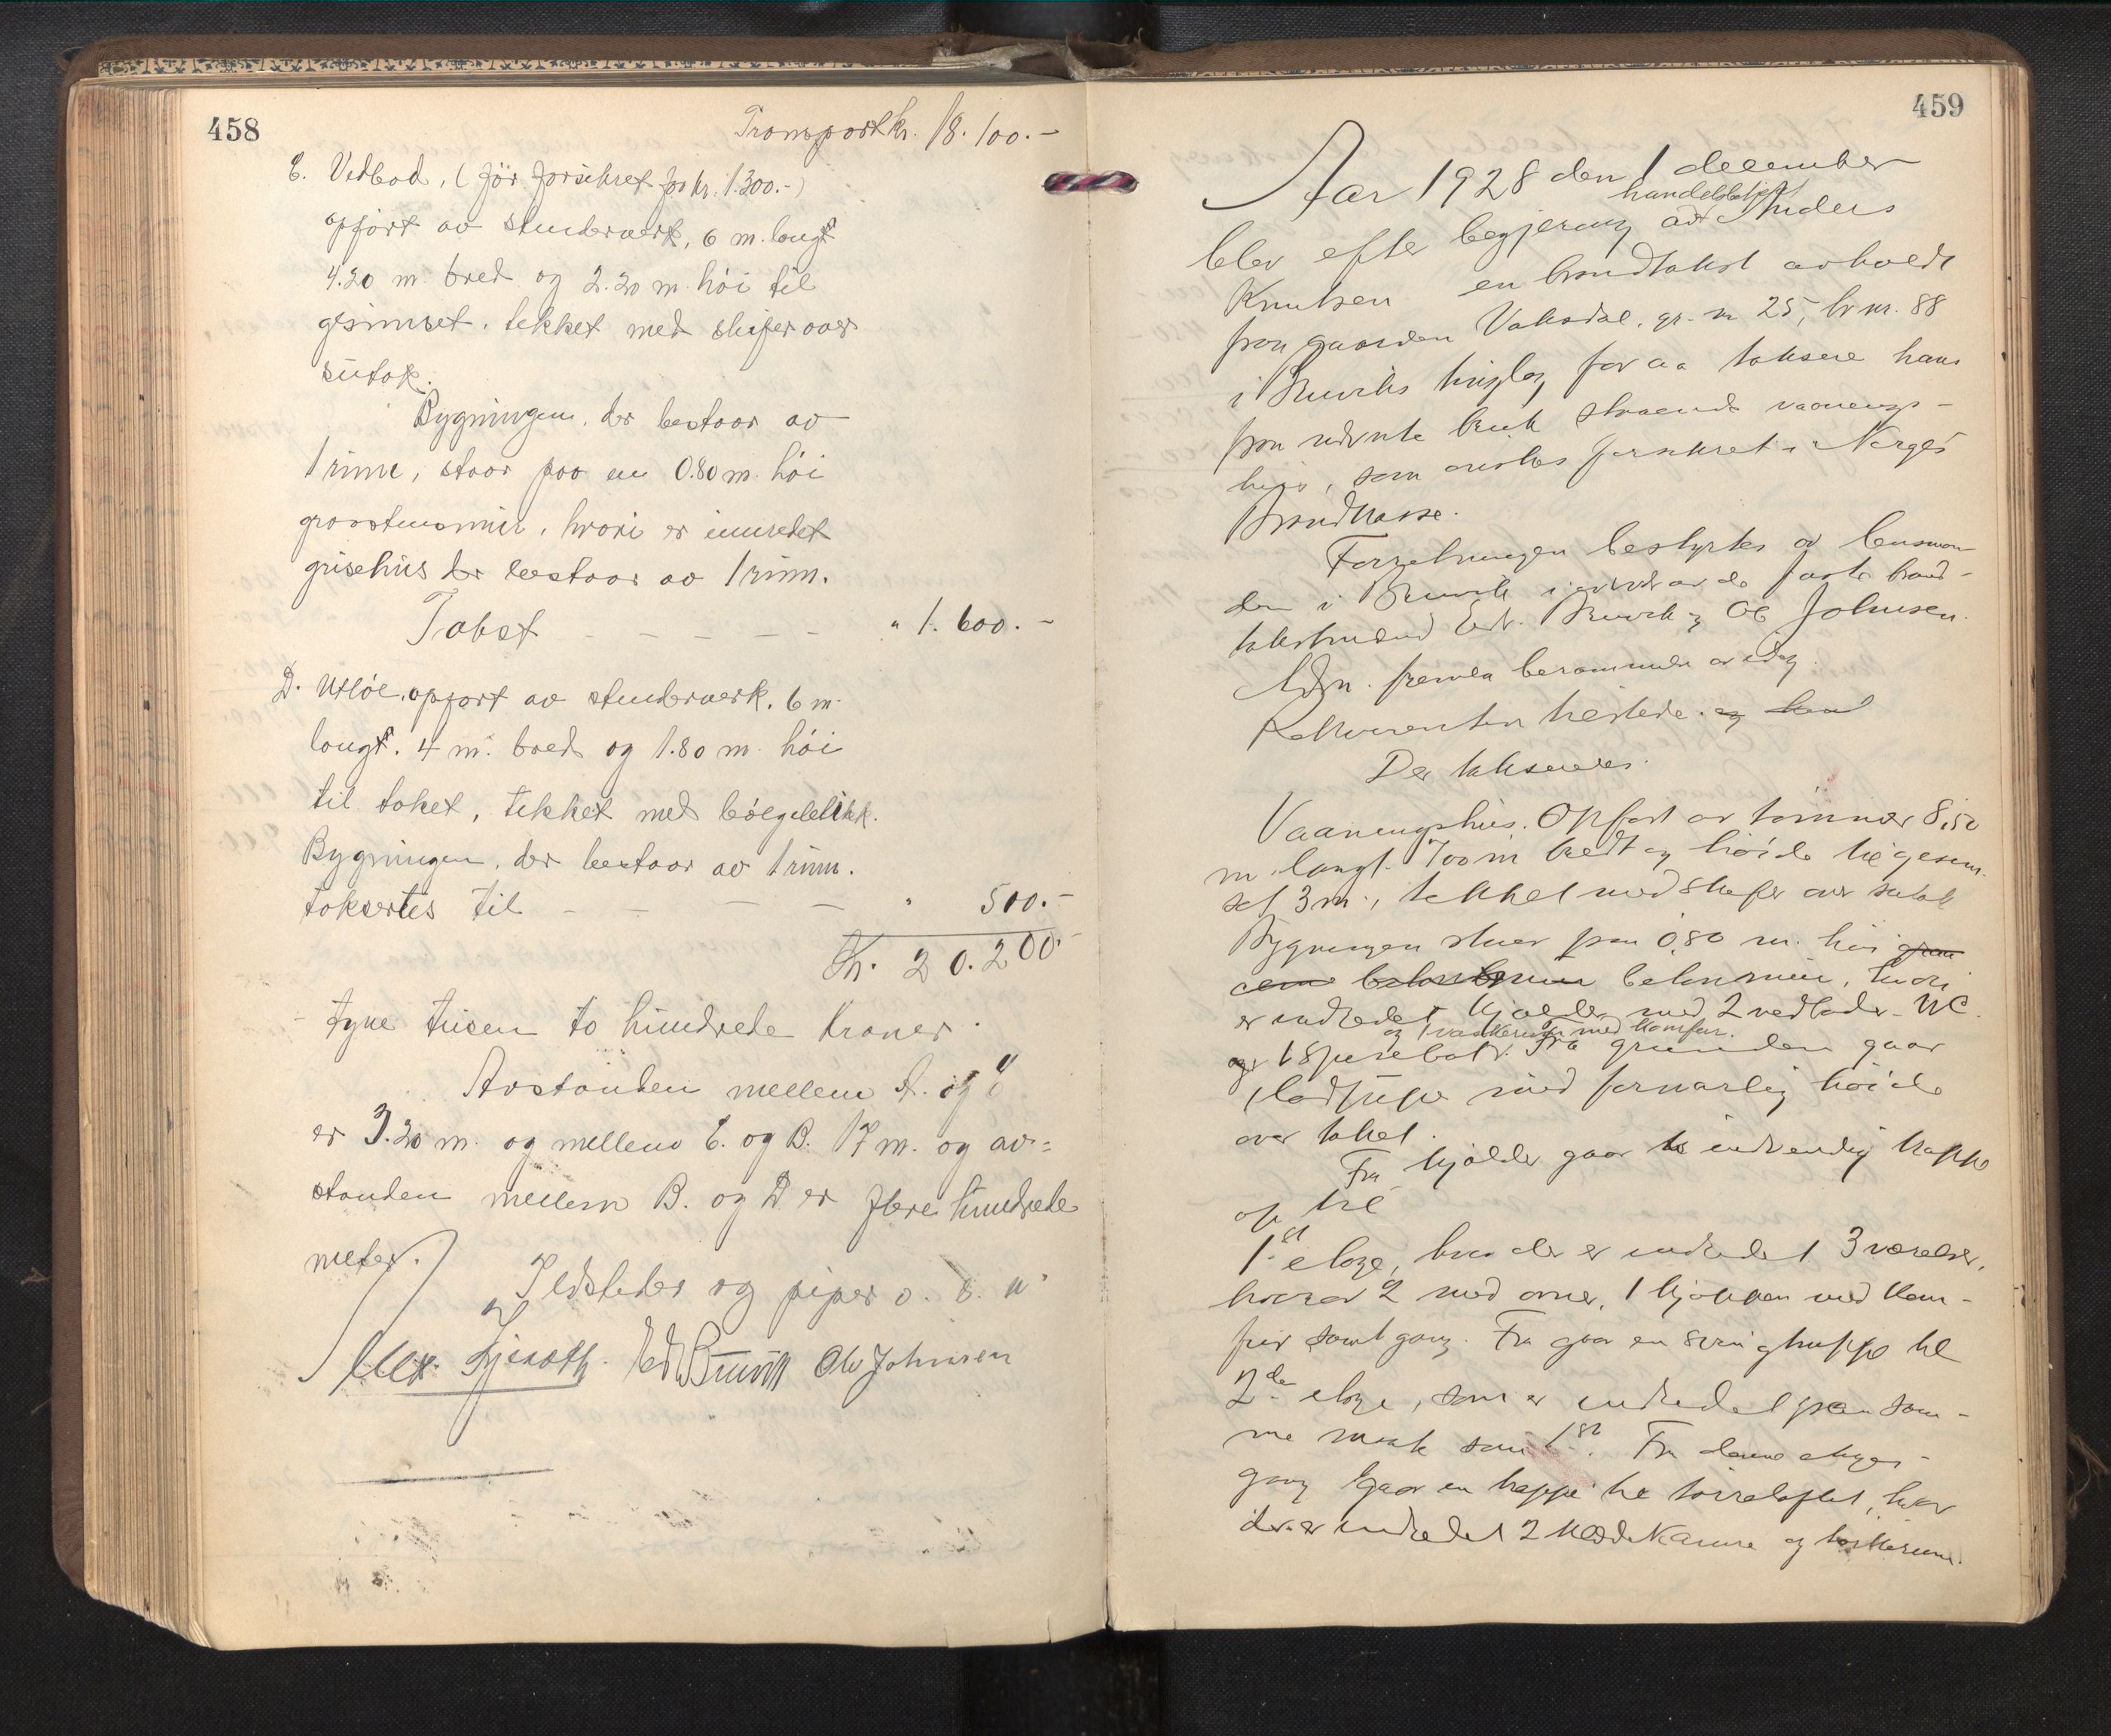 458
Transport kr. 18.100.-
C. Vedbod, (før forsikret for kr. 1.300.-)
opført av stenderverk, 6 m. langt
4.20 m. bred og 2.20 m. høi til
gesimset, tekket med skifer over
sutak.
Bygningen, der bestaar av
1 rum, staar paa en 0.80 m. høi
graastensmur, hvori er innredet
grisehus der bestaar av 1 rum.
Takst - - - - - " 1.600.-
D. Utløe, opført av stenderverk, 6 m.
langt, 4 m. bred og 1.80 m. høi
til taket, tekket med bølgeblikk.
Bygningen, der bestaar av 1 rum.
taksertes til - - - - " 500.-
Kr. 20.200.-
- tyve tusen to hundrede kroner.
Avstanden mellem A. og C
er 3.20 m. og mellem C. og B. 17 m. og av=
standen mellem B. og D. er flere hundrede
meter.
Ildsteder og piper o. s. v.
Alex Gjerath. Edv Bruvik Ole Johnsen
459
Aar 1928 den 1 december
handelsbetj.
blev efter begjering av Anders
Knutsen en brandtakst avholdt
paa gaarden Vaksdal, gr. nr 25, br nr. 88
i Bruviks tinglag for aa taksere hans
paa nævnte bruk staaende vaanings-
hus, som ønskes forsikret i Norges
Brandkasse.
Forretningen bestyrtes av lensman-
den i Bruvik i nærvær av de faste brand-
takstmænd Edv. Bruvik og Ole Johnsen.
Adm. fremla berammelse av idag.
Rekvirenten tilstede. og
Der takseredes.
Vaaningshus. Opført av tømmer 8,50
m. langt. 7.00 m bredt og høide til gesim-
set 3 m., tekket med skifer over sutak
Bygningen staar paa 0.80 m. høi
betonmur, hvori
er indredet kjælder med 2 vedboder. WC.
og 1 vaskerum med komfur.
og 1 spisebod. Fra grunden gaar
pladpipe med forsvarlig høide
over taket.
Fra kjælder gaar indvendig trappe
op til
1.st etage, hvor der er indredet 3 værelser,
hvorav 2 med ovner, 1 kjøkken med kom-
fur samt gang. Fra gaar en svingtrappe til
2.den etage, som er indredet paa sam-
me maate som 1.st. Fra denne etages
gang gaar en trappe til tørreloftet, hvor
der er indredet 2 klædekamre og tørkerum.